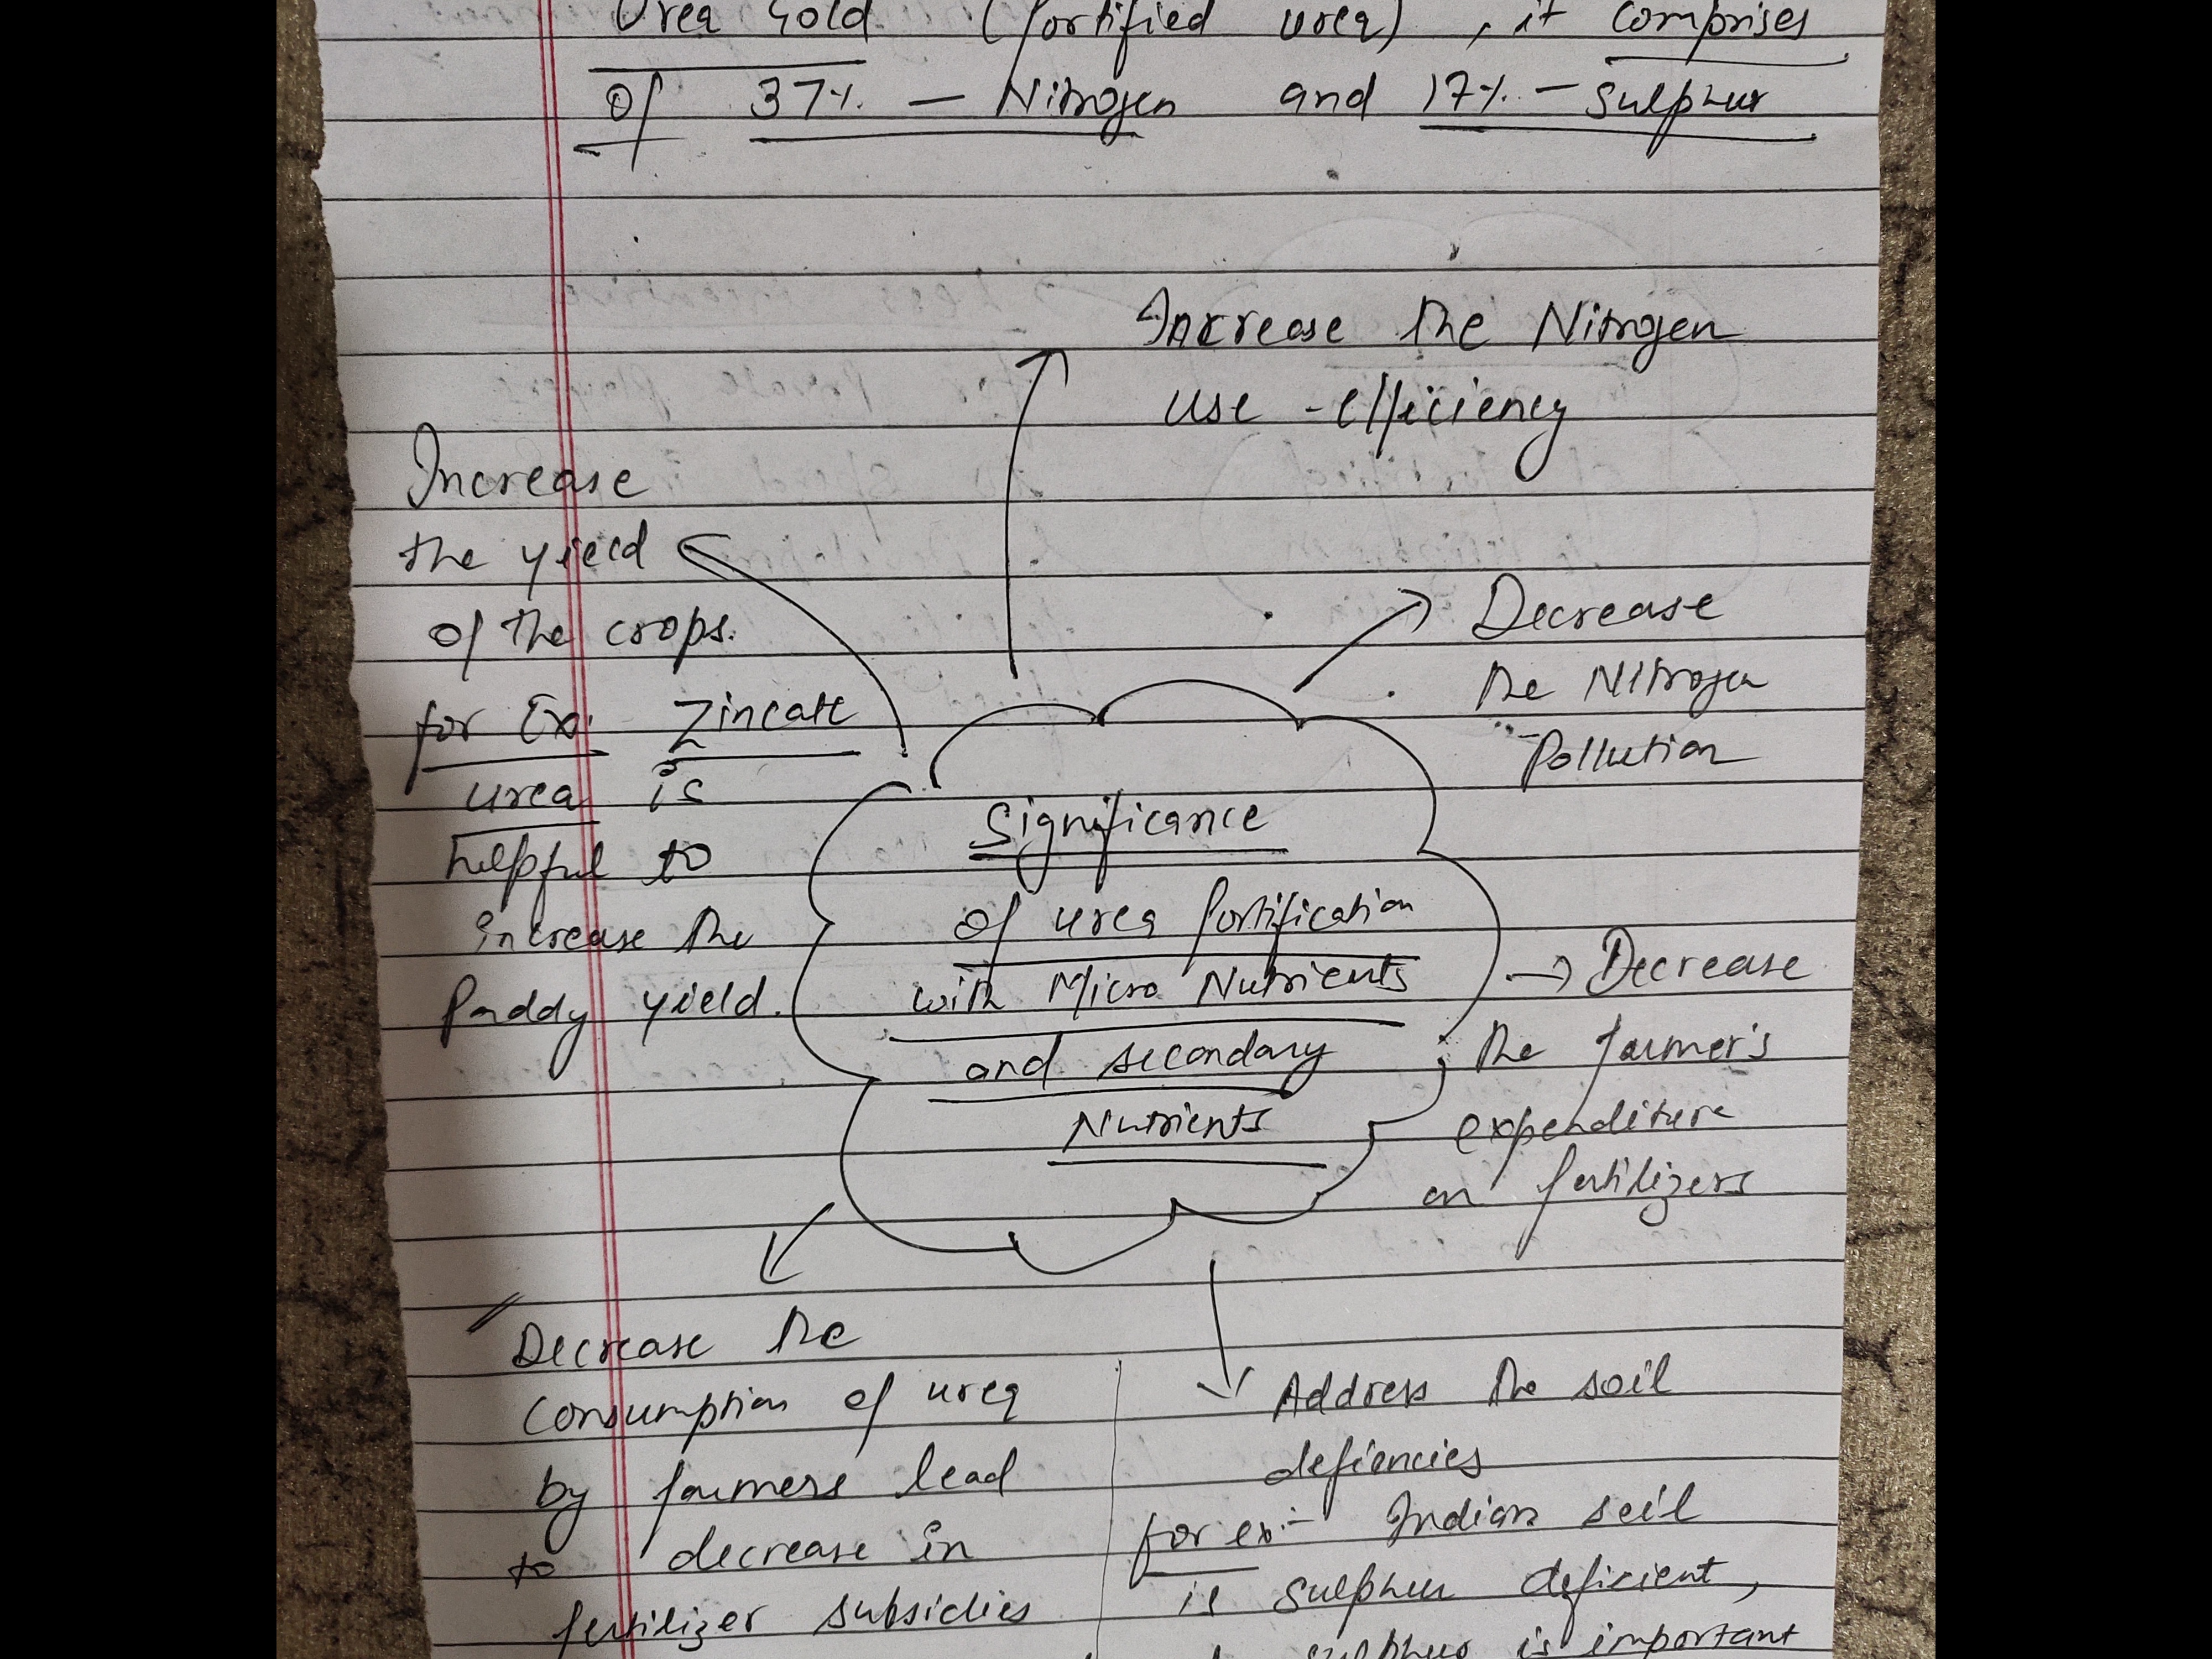 Urea Gold (fortified urea), it comprises
of 37% - Nitrogen and 17% - Sulphur
Increase the Nitrogen
use-efficiency
Increase
the yield
of the crops.
for Ex: Zincate
urea is
helpful to
increase the
Paddy yield.
Decrease
the Nitrogen
Pollution
Significance
of urea fortification
with Micro Nutrients
and secondary
Nutrients
→ Decrease
the farmer's
expenditure
on fertilizers
Decrease the
Consumption of urea
by farmers lead
to decrease in
fertilizer subsidies
Address the soil
defiencies
for ex:- Indian soil
is sulphur deficient,
sulphur is important